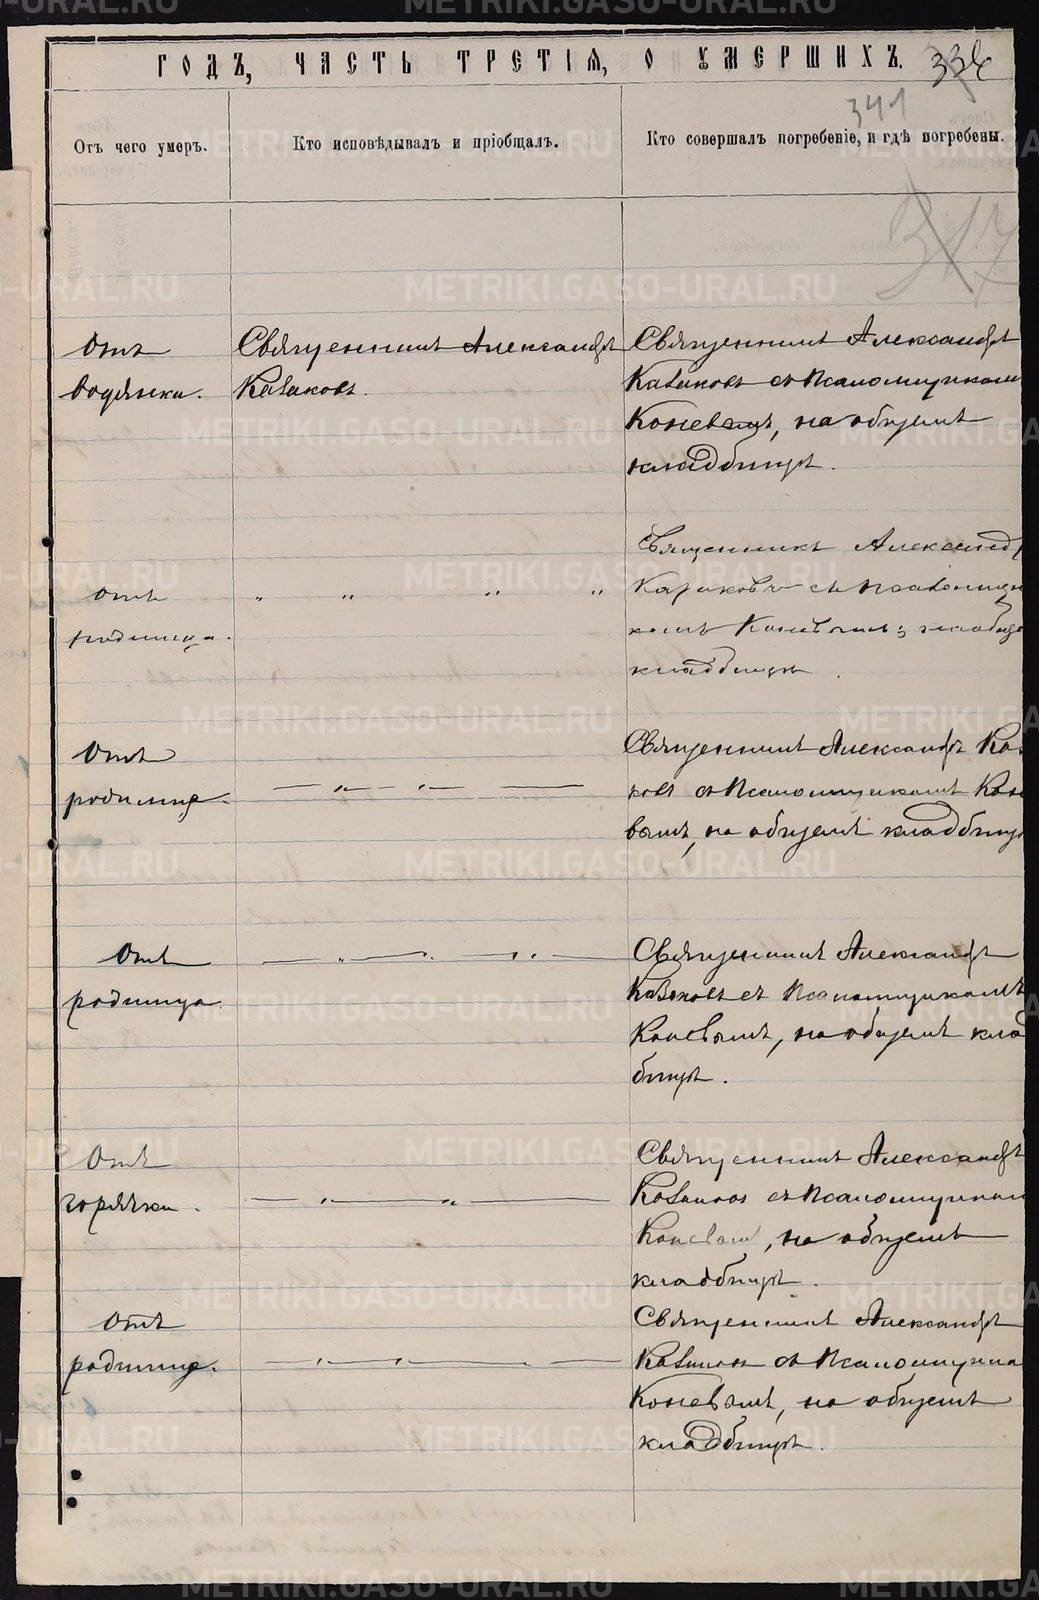 ГОДЪ, ЧАСТЬ ТРЕТІЯ, О УМЕРШИХЪ.
341
Отъ чего умеръ.
Кто исповѣдывалъ и пріобщалъ.
Кто совершалъ погребеніе, и гдѣ погребены.
317
Отъ
водянки.
Священникъ Александръ
Казаковъ.
Священникъ Александръ
Казаковъ съ Псаломщикомъ
Коневымъ, на общемъ
кладбищѣ.
отъ
родимца.
" " " "
Священникъ Александр
съ псаломщи
комъ Коневымъ;
кладбищѣ
Отъ
родимца.
— " - " — —
Священникъ Александръ Каз
ковъ съ Псаломщикомъ Коне
вымъ, на общемъ кладбищ
Отъ
родимца.
— " — " " —
Священникъ Александръ
Казаковъ съ Псаломщикомъ
Коневымъ, на общемъ клад
бищѣ.
Отъ
горячки.
— " — " —
Священникъ Александръ
Казаковъ съ Псаломщиком
Коневым, на общемъ
кладбищѣ.
Отъ
родимца.
— " — " — —
Священникъ Александръ
Казаковъ съ Псаломщико
Коневымъ, на общемъ
кладбищѣ.
METRIKI.GASO-URAL.RU